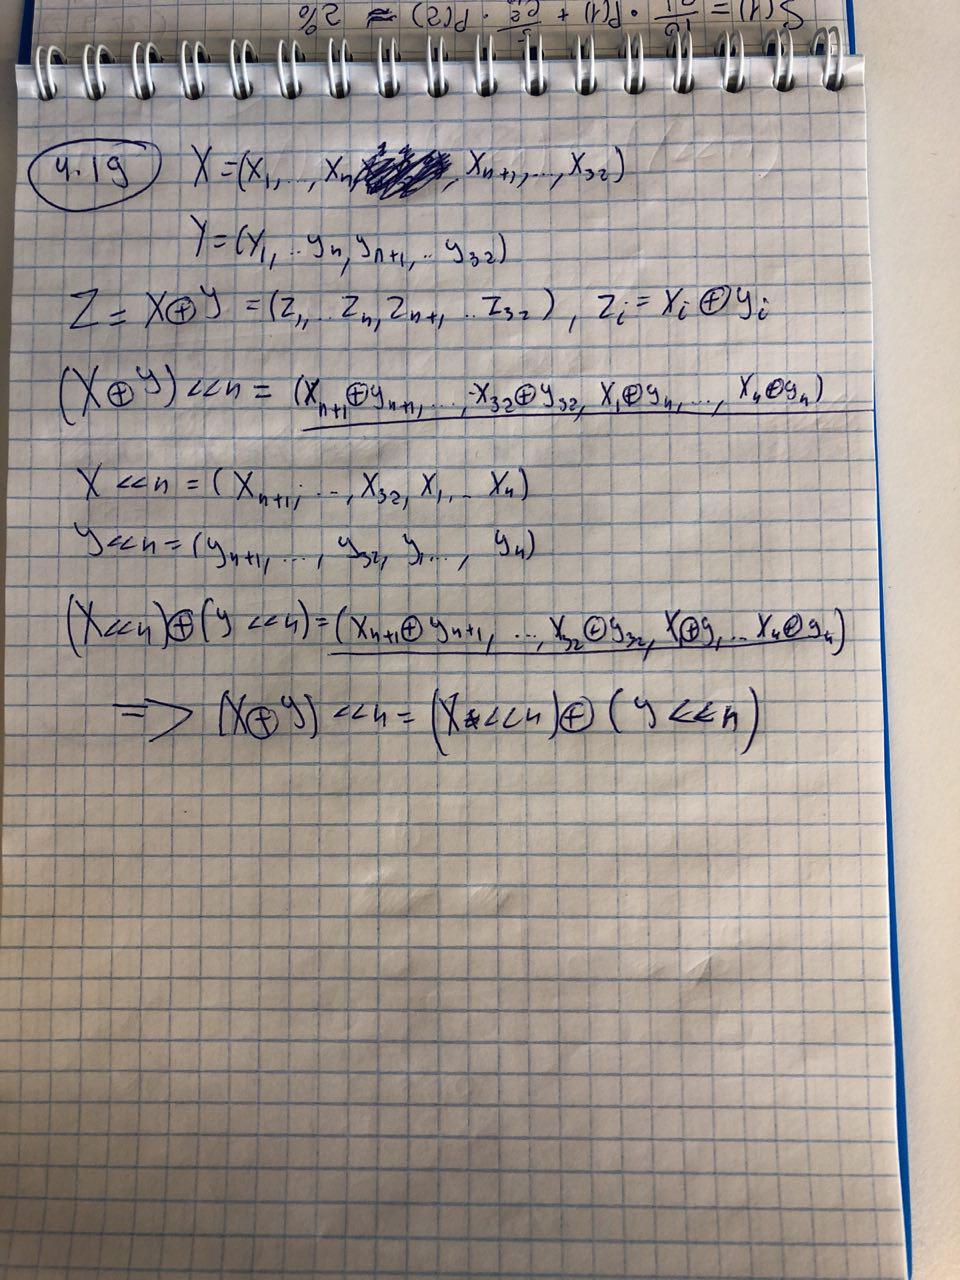 S(1) = · P(1) + · P(2) ≈ 2%
4.19 X = (X₁, ..., Xₙ, Xₙ₊₁, ..., X₃₂)
Y = (Y₁, .. yₙ, yₙ₊₁, .. y₃₂)
Z = X⊕y = (Z₁, .. Zₙ, Zₙ₊₁, .. Z₃₂), Zᵢ = Xᵢ ⊕ yᵢ
(X⊕y) <<n = (Xₙ₊₁⊕yₙ₊₁, ..., X₃₂⊕y₃₂, X₁⊕y₁, ..., Xₙ⊕yₙ)
X <<n = (Xₙ₊₁, ..., X₃₂, X₁, .. Xₙ)
y<<n = (yₙ₊₁, ..., y₃₂, y₁ ..., yₙ)
(X<<n)⊕(y <<n) = (Xₙ₊₁⊕yₙ₊₁, ..., X₃₂⊕y₃₂, X₁⊕y₁ ... Xₙ⊕yₙ)
=> (X⊕y) <<n = (X<<n)⊕(y<<n)